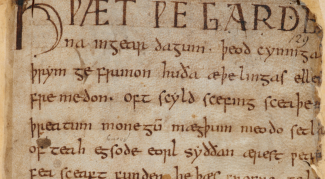 HǷÆT ǷE GARDE
na ingear dagum. þeod cyninga
þrym ge frunon huða æþelingas elle
fremedon. oft scyld scefing sceaþe
þreatum monegū mægþum meodo setl
of teah egsode eorl syððan ærest
fea sceaft funden he þæs